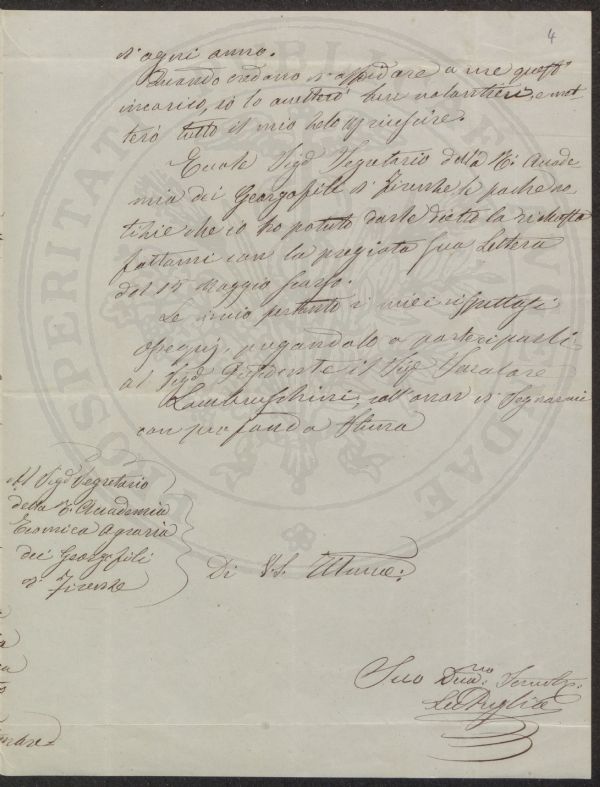 4
d'ogni anno.
Quando credano d'affidare a me questo
incarico, io lo accetterò ben volentieri, e met
terò tutto il mio zelo riuscire.
Eccole Sigr Segretario della Rl Accade
mia dei Georgofili di Firenze le poche no
tizie che io ho potuto darle dietro la richiesta
fattami con la pregiata Sua Lettera
del 15 Maggio scorso.
Le invio pertanto i miei rispettosi
ossequj, pregandolo a parteciparli
al Sigr Presidente il Sigr Senatore
Lambruschini, coll'onor di segnarmi
con profonda stima
Al Sigr Segretario
della Rl Accademia
Economica Agraria
dei Georgofili
di Firenze
Di V.S. Illma:
Suo Servitr: